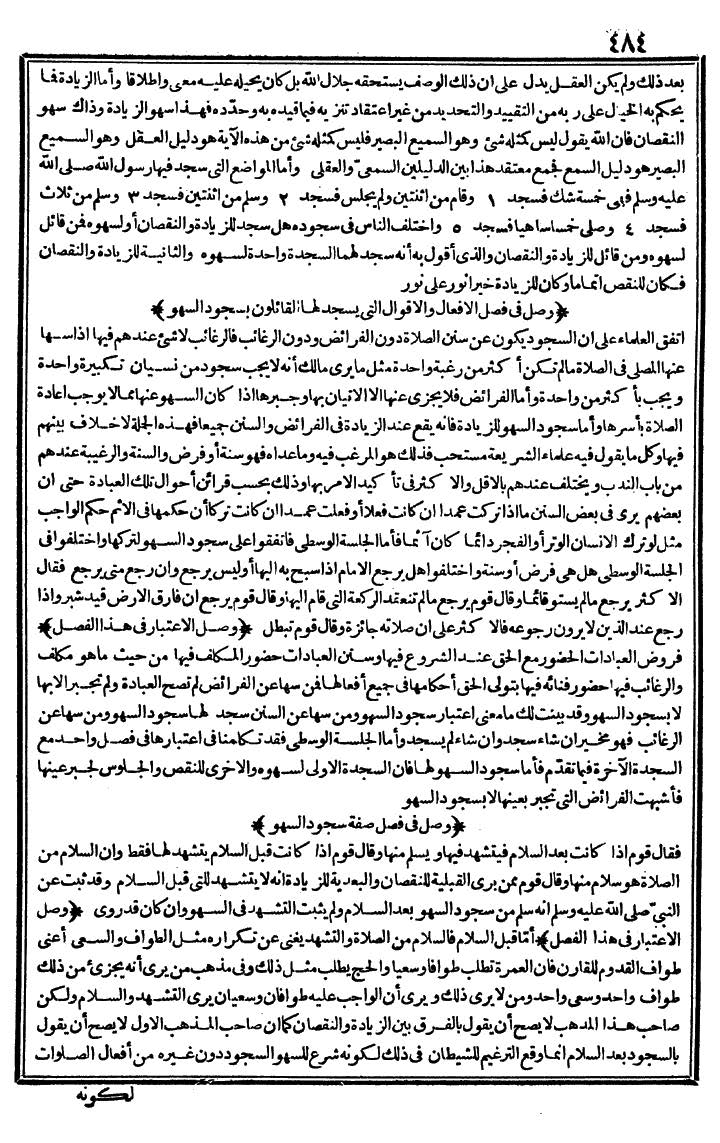 ٤٨٤
بعد ذلك ولم يكن العقل يدل على ان ذلك الوصف يستحقه جلال الله بل كان يحيله عليه معنى واطلاقا وأما الزيادة فما
يحكم به الخيال على ربه من التقييد والتحديد من غير اعتقاد تنزيه فيما قيده به وحدّده فهذا سهو الزيادة وذاك سهو
النقصان فان الله يقول ليس كمثله شئ وهو السميع البصير فليس كمثله شئ من هذه الآية هو دليل العقل وهو السميع
البصير هو دليل السمع فجمع معتقد هذا بين الدليلين السمعىّ والعقلى وأما المواضع التى سجد فيها رسول الله صلى الله
عليه وسلم فهى خمسة شك فسجد ١ وقام من اثنتين ولم يجلس فسجد ٢ وسلم من اثنتين فسجد ٣ وسلم من ثلاث
فسجد ٤ وصلى خمسا ساهيا فسجد ٥ واختلف الناس فى سجوده هل سجد للزيادة والنقصان أو لسهوه فمن قائل
لسهوه ومن قائل للزيادة والنقصان والذى أقول به أنه سجد لهما السجدة واحدة لسهوه والثانية للزيادة والنقصان
فكان للنقص اتماما وكان للزيادة خيرا نور على نور
﴿وصل فى فصل الافعال والاقوال التى يسجد لها القائلون بسجود السهو﴾
اتفق العلماء على ان السجود يكون عن سنن الصلاة دون الفرائض ودون الرغائب فالرغائب لا شئ عندهم فيها اذا سها
عنها المصلى فى الصلاة ما لم تكن أكثر من رغبة واحدة مثل ما يرى مالك أنه لا يجب سجود من نسيان تكبيرة واحدة
ويجب بأكثر من واحدة وأما الفرائض فلا يجزى عنها الا الاتيان بها وجبرها اذا كان السهو عنها مما لا يوجب اعادة
الصلاة بأسرها وأما سجود السهو للزيادة فانه يقع عند الزيادة فى الفرائض والسنن جميعا فهذه الجملة لا خلاف بينهم
فيها وكل ما يقول فيه علماء الشريعة مستحب فذلك هو المرغب فيه وما عداه فهو سنة أو فرض والسنة والرغيبة عندهم
من باب الندب ويختلف عندهم بالاقل والاكثر فى تأكيد الامر بها وذلك بحسب قرائن أحوال تلك العبادة حتى ان
بعضهم يرى فى بعض السنن ما اذا تركت عمدا ان كانت فعلا أو فعلت عمدا ان كانت تركا أن حكمها فى الاثم حكم الواجب
مثل لو ترك الانسان الوتر أو الفجر دائما كان آثما فأما الجلسة الوسطى فاتفقوا على سجود السهو لتركها واختلفوا فى
الجلسة الوسطى هل هى فرض أو سنة واختلفوا هل يرجع الامام اذا سبح به اليها أو ليس يرجع وان رجع متى يرجع فقال
الاكثر يرجع ما لم يستو قائما وقال قوم يرجع ما لم تنعقد الركعة التى قام اليها وقال قوم يرجع ان فارق الارض قيد شبر واذا
رجع عند الذين لا يرون رجوعه فالاكثر على ان صلاته جائزة وقال قوم تبطل ﴿وصل الاعتبار فى هذا الفصل﴾
فروض العبادات الحضور مع الحق عند الشروع فيها وسنن العبادات حضور المكلف فيها من حيث ما هو مكلف
والرغائب فيها حضور فنائه فيها بتولى الحق أحكامها فى جميع أفعالها فمن سها عن الفرائض لم تصح العبادة ولم تجبر الا بها
لا بسجود السهو وقد بينت لك ما معنى اعتبار سجود السهو ومن سها عن السنن سجد لها سجود السهو ومن سها عن
الرغائب فهو مخير ان شاء سجد وان شاء لم يسجد وأما الجلسة الوسطى فقد تكلمنا فى اعتبارها فى فصل واحد مع
السجدة الآخرة فيما تقدّم فأما سجود السهو لها فان السجدة الاولى لسهوه والاخرى للنقص والجلوس لجبر عينها
فأشبهت الفرائض التى تجبر بعينها لا بسجود السهو
﴿وصل فى فصل صفة سجود السهو﴾
فقال قوم اذا كانت بعد السلام فيتشهد فيها ويسلم منها وقال قوم اذا كانت قبل السلام يتشهد لها فقط وان السلام من
الصلاة هو سلام منها وقال قوم ممن يرى القبلية للنقصان والبعدية للزيادة انه لا يتشهد للتى قبل السلام وقد ثبت عن
النبىّ صلى الله عليه وسلم انه سلم من سجود السهو بعد السلام ولم يثبت التشهد فى السهو وان كان قد روى ﴿وصل
الاعتبار فى هذا الفصل﴾ أمّا قبل السلام فالسلام من الصلاة والتشهد يغنى عن تكراره مثل الطواف والسعى أعنى
طواف القدوم للقارن فان العمرة تطلب طوافا وسعيا والحج يطلب مثل ذلك وفى مذهب من يرى أنه يجزئ من ذلك
طواف واحد وسعى واحد ومن لا يرى ذلك ويرى أن الواجب عليه طوافان وسعيان يرى التشهد والسلام ولكن
صاحب هذا المذهب لا يصح أن يقول بالفرق بين الزيادة والنقصان كما ان صاحب المذهب الاول لا يصح أن يقول
بالسجود بعد السلام انما وقع الترغيم للشيطان فى ذلك لكونه شرع للسهو السجود دون غيره من أفعال الصلوات
لكونه